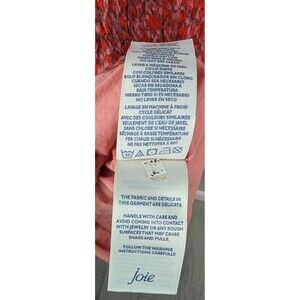 DO NOT DRY CLEAN
LAVAR A MÁQUINA EN FRÍO
CICLO SUAVE
CON COLORES SIMILARES
SOLO BLANQUEADOR SIN CLORO
CUANDO SEA NECESARIO
SECAR EN SECADORA A
BAJA TEMPERATURA
HIERRO TIBIO SI ES NECESARIO
NO LAVAR EN SECO
LAVAGE EN MACHINE À FROID
CYCLE DÉLICAT
AVEC DES COULEURS SIMILAIRES
SEULEMENT DE L'EAU DE JAVEL
SANS CHLORE SI NÉCESSAIRE
SÉCHAGE À BASSE TEMPÉRATURE
FER CHAUD SI NÉCESSAIRE
NE PAS NETTOYER À SEC
THE FABRIC AND DETAILS IN
THIS GARMENT ARE DELICATE.
HANDLE WITH CARE AND
AVOID COMING INTO CONTACT
WITH JEWELRY OR ANY ROUGH
SURFACES THAT MAY CAUSE
SNAGS AND PULLS.
FOLLOW THE WASHING
INSTRUCTIONS CAREFULLY.
joie